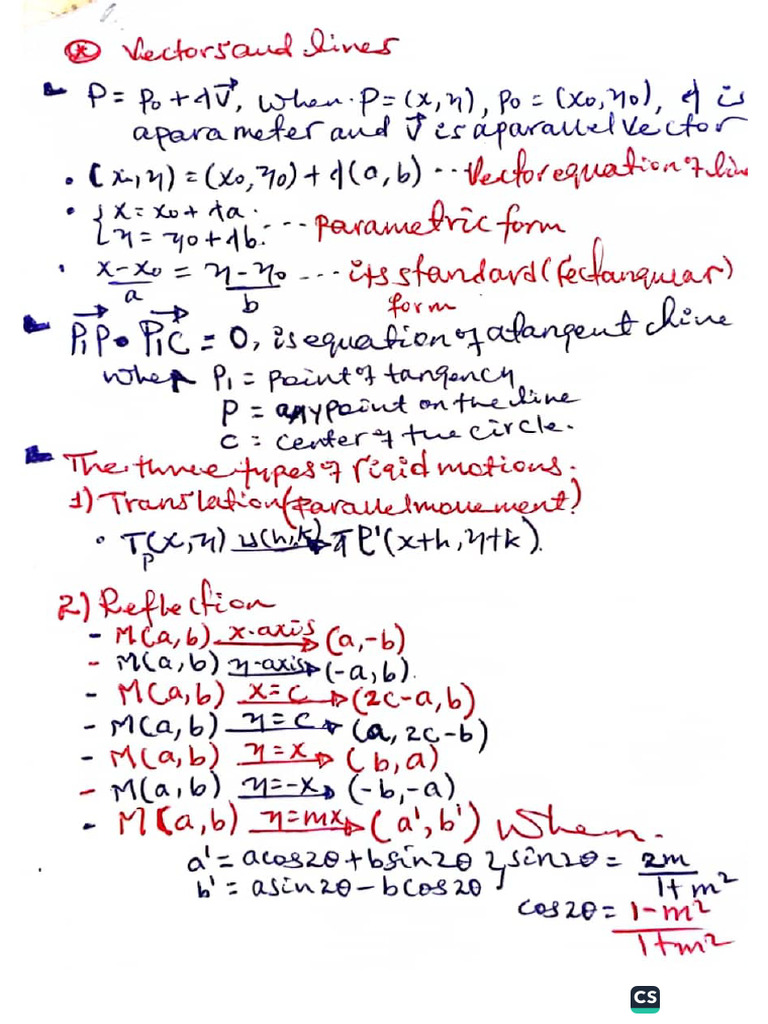 ⊛ Vectors and lines
P = P₀ + λV⃗, when P = (x, y), P₀ = (x₀, y₀), λ is
a parameter and V⃗ is a parallel vector
• (x, y) = (x₀, y₀) + λ(a, b) --- Vector equation of line
• { x = x₀ + λa.
{ y = y₀ + λb. --- parametric form
• x - x₀ / a = y - y₀ / b --- its standard (rectangular) form
P₁P⃗ • P₁C⃗ = 0, is equation of a tangent line
when P₁ = point of tangency
P = any point on the line
C = center of the circle.
The three types of rigid motions.
1) Translation (parallel movement)
• T
P(x, y) u(h, k) → P'(x+h, y+k).
2) Reflection
- M(a, b) x-axis → (a, -b)
- M(a, b) y-axis → (-a, b).
- M(a, b) x = c → (2c-a, b)
- M(a, b) y = c → (a, 2c-b)
- M(a, b) y = x → (b, a)
- M(a, b) y = -x → (-b, -a)
- M(a, b) y = mx → (a', b') when.
a' = acos2θ + bsin2θ } sin2θ = 2m / 1+m²
b' = asin2θ - bcos2θ
cos2θ = 1-m² / 1+m²
CS